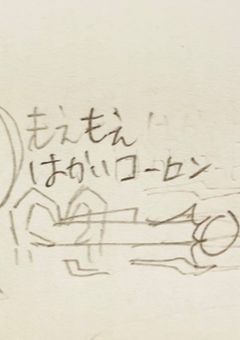 もえもえ
はかいコーセン